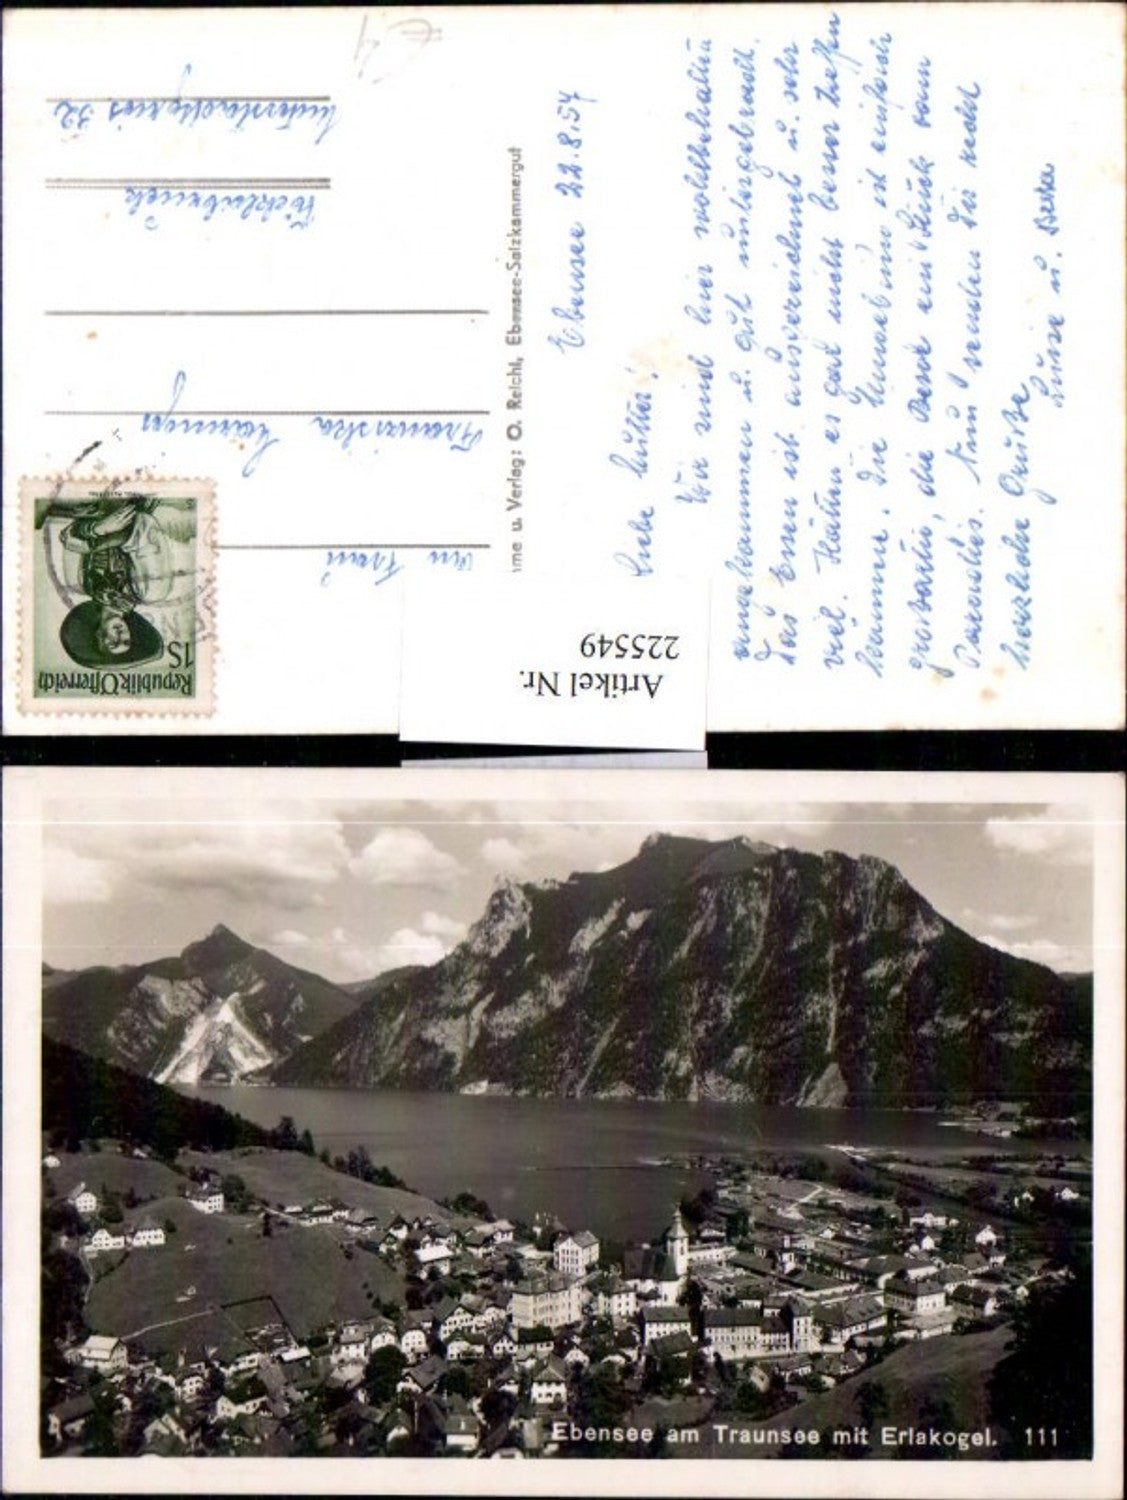 Ebensee 22.8.54
Liebe Mutter!
Wir sind hier wohlbehalten
angekommen u. gut untergebracht.
Das Essen ist ausgezeichnet u. sehr
viel. Hätten es gar nicht besser treffen
können. Die Umgebung ist einfach
großartig, die Berge ein Stück vom
Paradies. Nun senden Dir recht
herzliche Grüße
Luise u.
An Frau
Franziska
Vöcklabruck
32
me u. Verlag: O. Reichl, Ebensee-Salzkammergut
1S
Republik Österreich
Artikel Nr.
225549
€4
Ebensee am Traunsee mit Erlakogel. 111